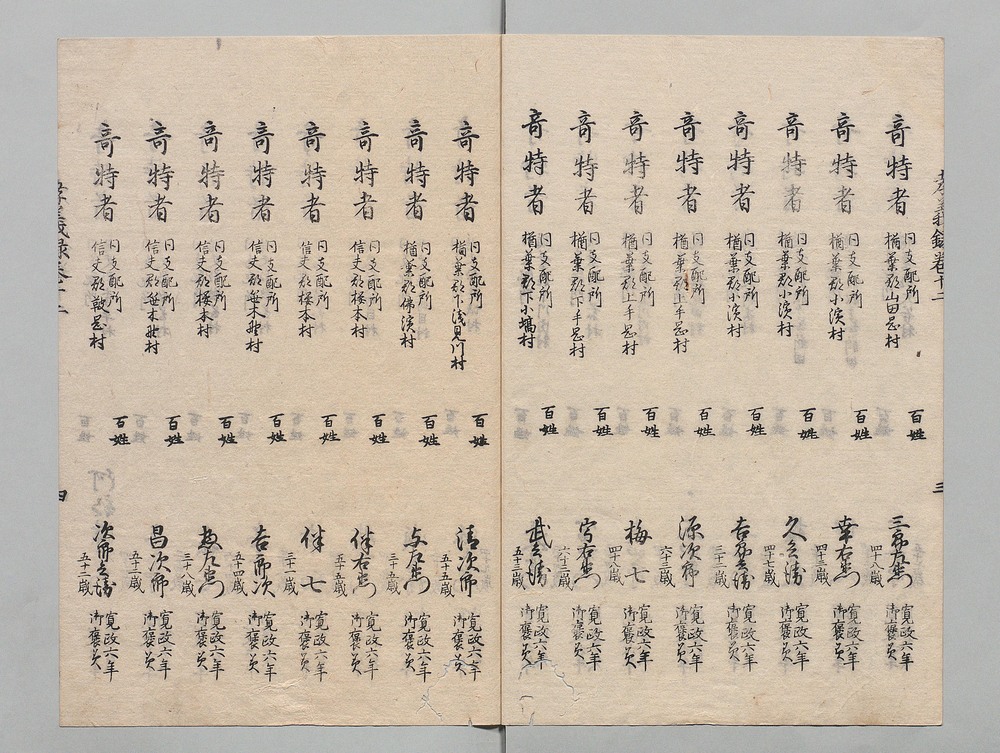 孝義録卷十二
三
竒特者 同支配所 楢葉郡山田岡村 百姓 三郎左衛門 四十八歳 寛政六年 御褒美
竒特者 同支配所 楢葉郡小濱村 百姓 幸右衛門 四十三歳 寛政六年 御褒美
竒特者 同支配所 楢葉郡小濱村 百姓 久兵衛 四十七歳 寛政六年 御褒美
竒特者 同支配所 楢葉郡小濱村 百姓 吉郎兵衛 三十二歳 寛政六年 御褒美
竒特者 同支配所 楢葉郡上手岡村 百姓 源次郎 六十三歳 寛政六年 御褒美
竒特者 同支配所 楢葉郡上手岡村 百姓 梅七 四十八歳 寛政六年 御褒美
竒特者 同支配所 楢葉郡下手岡村 百姓 宇右衛門 六十三歳 寛政六年 御褒美
竒特者 同支配所 楢葉郡下小塙村 百姓 武兵衛 五十三歳 寛政六年 御褒美
竒特者 同支配所 楢葉郡下浅見川村 百姓 清次郎 五十五歳 寛政六年 御褒美
竒特者 同支配所 楢葉郡佛濱村 百姓 与左衛門 三十五歳 寛政六年 御褒美
竒特者 同支配所 信夫郡桜本村 百姓 伴右衛門 五十五歳 寛政六年 御褒美
竒特者 同支配所 信夫郡桜本村 百姓 伴七 三十一歳 寛政六年 御褒美
竒特者 同支配所 信夫郡笹木野村 百姓 吉郎次 五十四歳 寛政六年 御褒美
竒特者 同支配所 信夫郡桜本村 百姓 左衛門 三十八歳 寛政六年 御褒美
竒特者 同支配所 信夫郡笹木野村 百姓 昌次郎 五十一歳 寛政六年 御褒美
竒特者 同支配所 信夫郡村 百姓 次郎兵衛 五十二歳 寛政六年 御褒美
孝義録卷十二
四